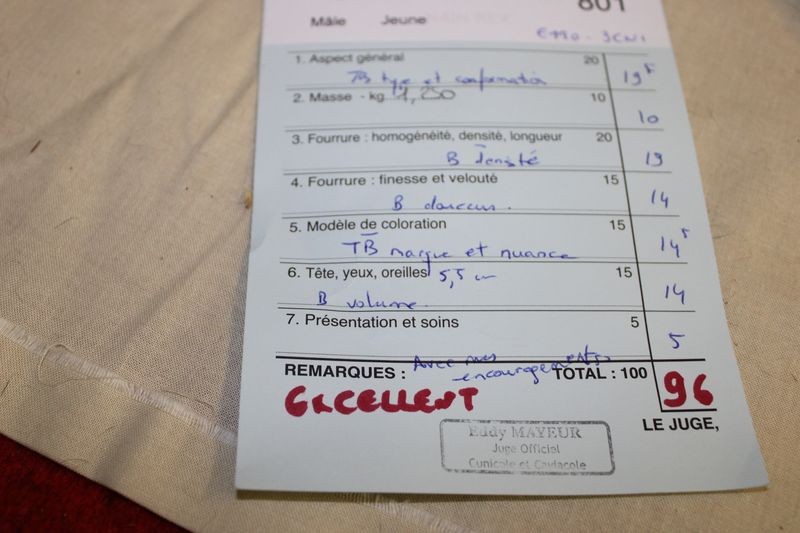 801
Mâle Jeune
1. Aspect général 20
TB type et conformation 19,5
2. Masse - kg 1,250 10
10
3. Fourrure : homogénéité, densité, longueur 20
B densité 19
4. Fourrure : finesse et velouté 15
B douceur. 14
5. Modèle de coloration 15
TB marque et nuance 14,5
6. Tête, yeux, oreilles 5,5 cm 15
B volume. 14
7. Présentation et soins 5
5
Avec mes
encouragements
REMARQUES : TOTAL : 100 96
EXCELLENT
LE JUGE,
Eddy MAYEUR
Juge Officiel
Cunicole et Caviacole